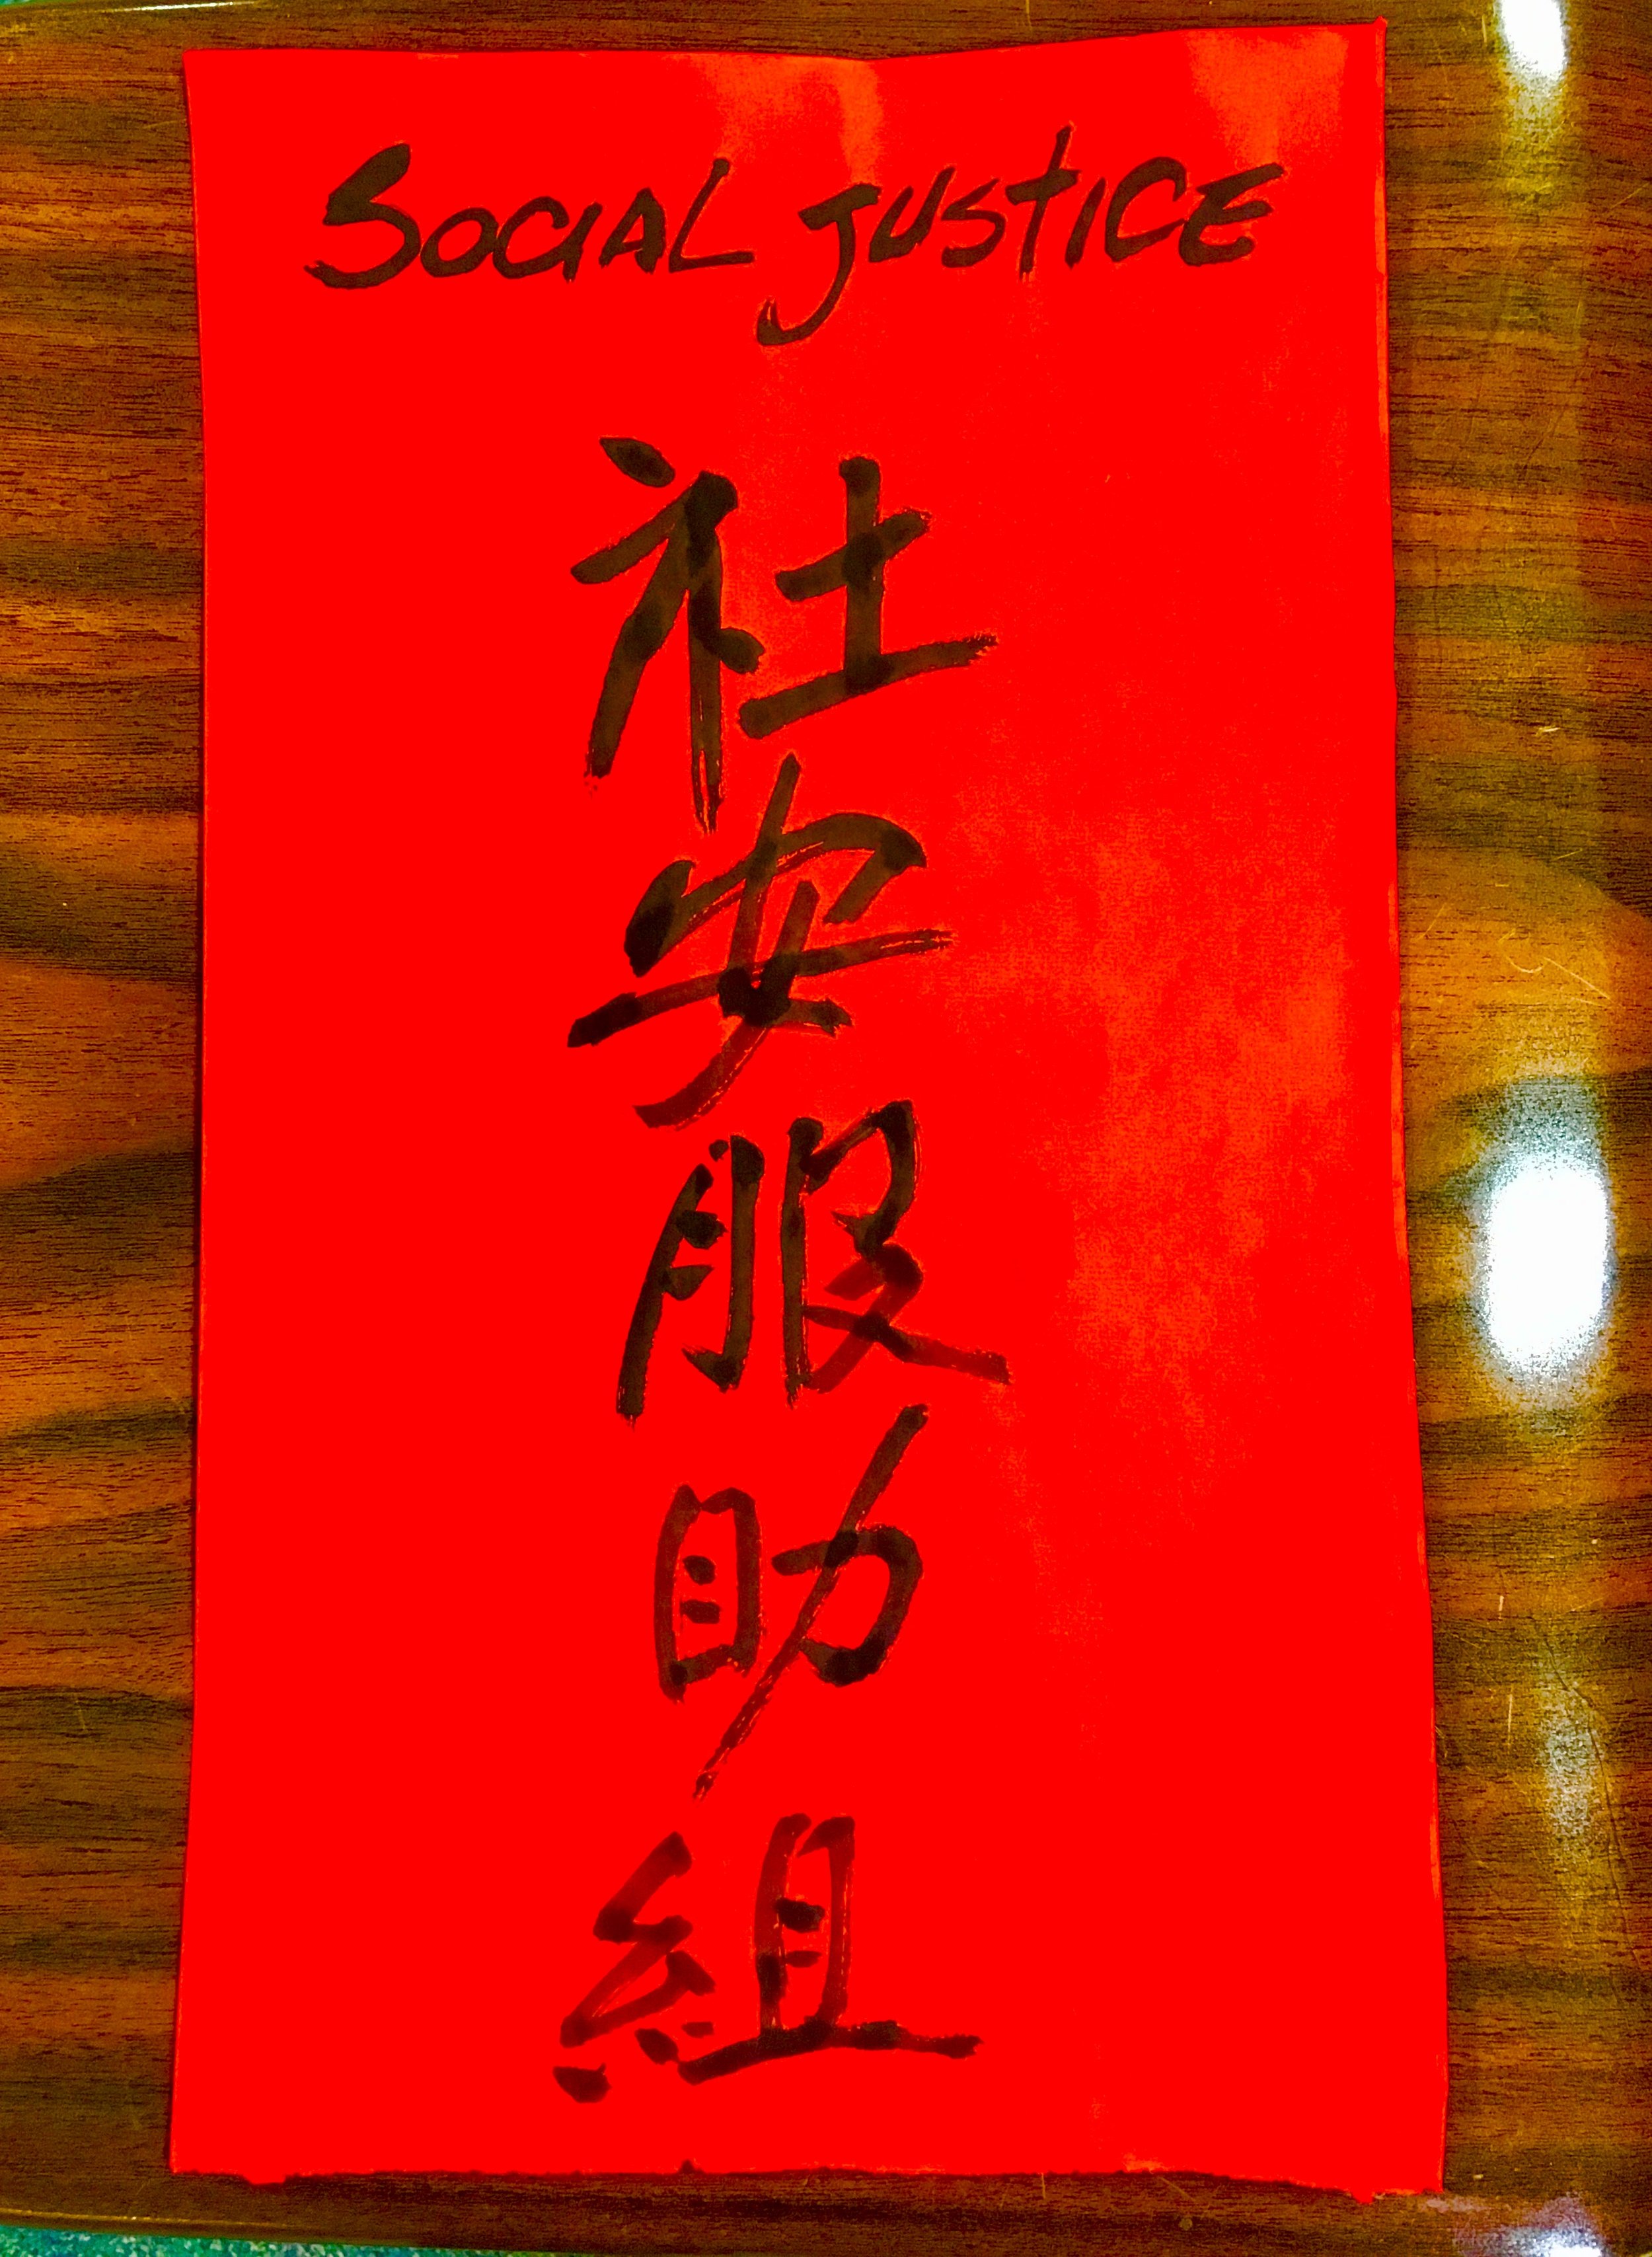 SOCIAL JUSTICE
社安服助組